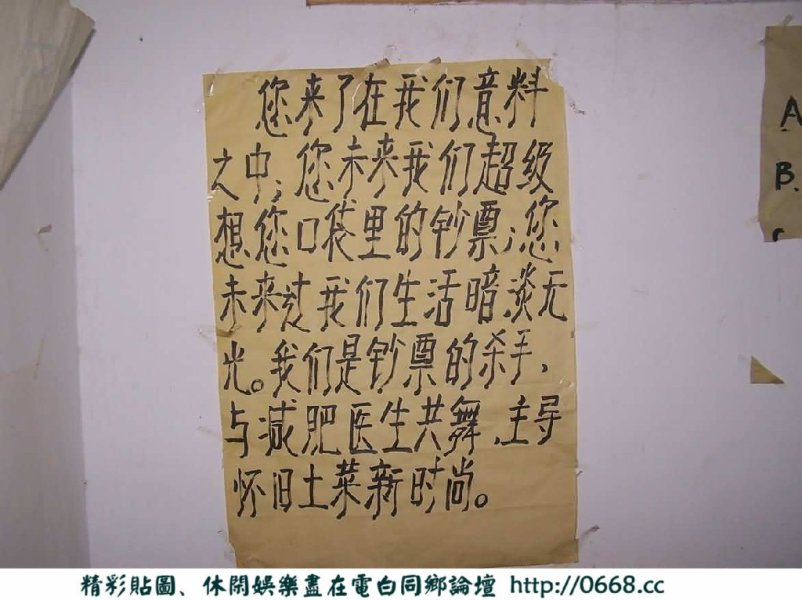 您来了在我们意料
之中；您未来我们超级
想您口袋里的钞票；您
未来过我们生活暗淡无
光。我们是钞票的杀手，
与减肥医生共舞，主导
怀旧土菜新时尚。
A
B.
精彩貼圖、休閑娛樂盡在電白同鄉論壇 http://0668.cc